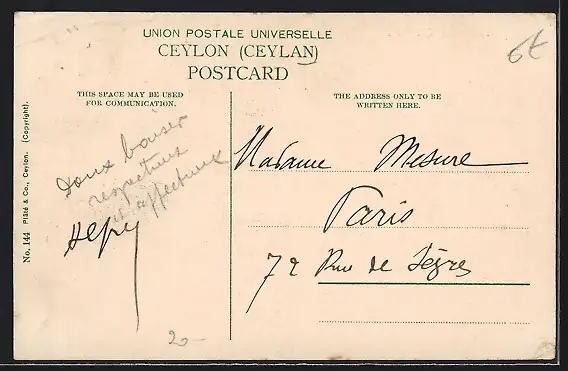 UNION POSTALE UNIVERSELLE
CEYLON (CEYLAN)
POSTCARD
6€
THIS SPACE MAY BE USED
FOR COMMUNICATION.
THE ADDRESS ONLY TO BE
WRITTEN HERE.
Doux baiser
respectueux
et affectueux
Madame Mesure
Paris
72 Rue de Sèvres
20-
No. 144 Plâté & Co., Ceylon. (Copyright).